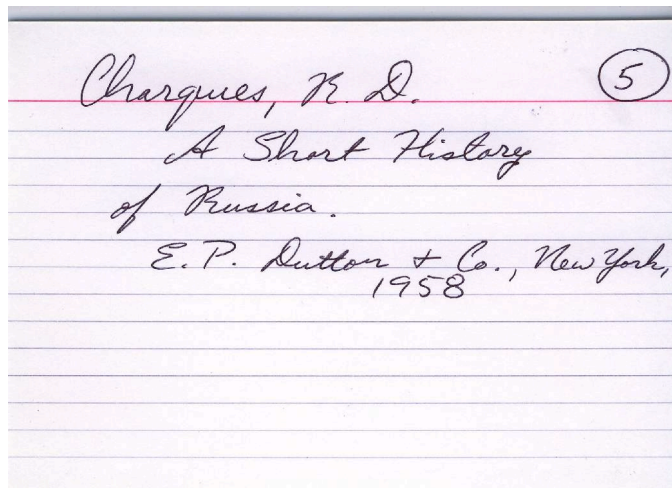 Charques, R. D. 5
A Short History
of Russia.
E.P. Dutton & Co., New York,
1958